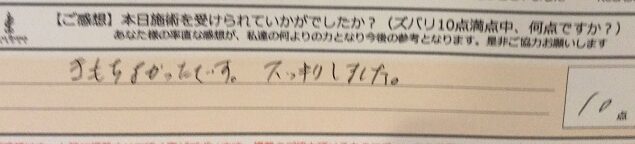 【ご感想】本日施術を受けられていかがでしたか？（ズバリ10点満点中、何点ですか？）
あなた様の率直な感想が、私達の何よりの力となり今後の参考となります。是非ご協力お願いします
きもちよかったです。スッキリしました。
10点